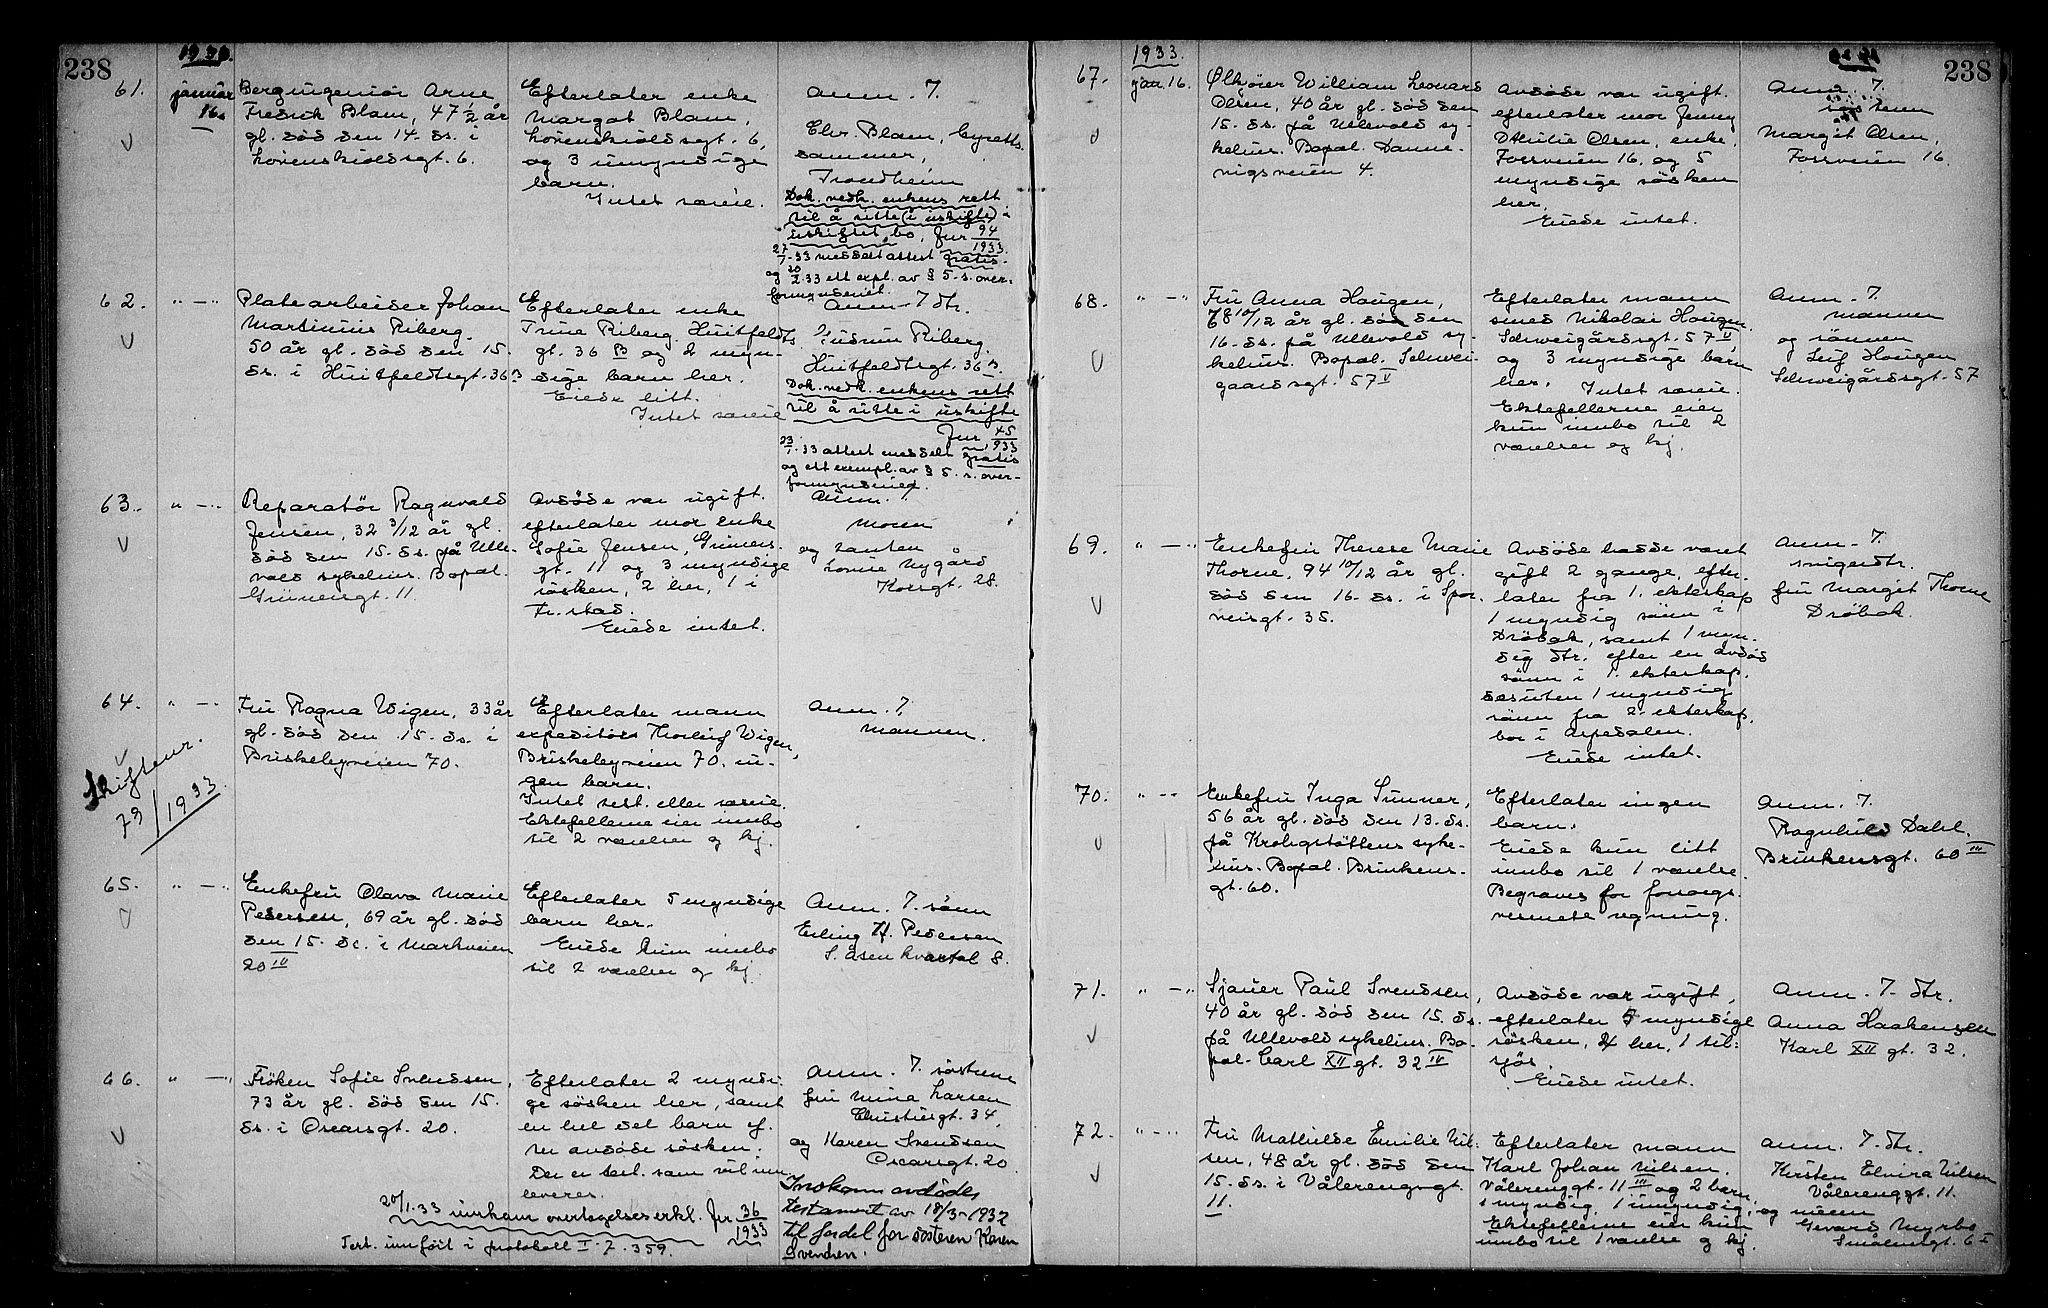 238
1933.
61.
januar
16.
Bergingeniør Arne
Fredrik Blam, 47 1/2 år
gl. død den 14. ds. i
Løvenskioldsgt. 6.
Efterlater enke
Margot Blam,
Løvenskioldsgt. 6,
og 3 umyndige
barn.
Intet særeie.
Anm. 7.
Elv. Blam, byretts
dommer,
Trondheim
Dok. vedk. enkens rett
til å sitte (i uskifte) i
uskiftet bo, Jnr 94/1933
27/1.33 meddelt attest gratis.
og 20/2.33 ett expl. av § 5. s. over-
formynderiet.
62.
" — "
Platearbeider Johan
Martinius Riberg.
50 år gl. død den 15.
ds. i Huitfeldtsgt. 36 B
Efterlater enke
Trine Riberg, Huitfeldts
gt. 36 B og 2 myn-
dige barn her.
Eiede litt.
Intet særeie
Anm. 7 dtr.
Gudrun Riberg.
Huitfeldtsgt. 36 B.
Dok. vedk. enkens rett
til å sitte i uskifte
Jnr 45/933
23/1.33 attest meddelt gratis
og ett exempl. av § 5. s. over-
formynderiet.
63.
" — "
Reparatør Ragnvald
Jensen, 32 3/12 år gl.
død den 15. ds. på Ulle-
vold sykehus. Bopel.
Grünersgt. 11.
Avdøde var ugift.
efterlater mor enke
Sofie Jensen, Grüners-
gt. 11 og 3 myndige
søsken, 2 her, 1 i
Fr.stad.
Eiede intet.
Anm. 7
Moren
og tanten
Lovise Nygård
Korsgt. 28.
64.
" — "
Skiftenr.
79/1933.
Fru Ragna Wigen, 33 år
gl. død den 15. ds. i
Briskebyveien 70.
Efterlater mann
expeditør Thorleif Wigen,
Briskebyveien 70. in-
gen barn.
Intet test. eller særeie.
Ektefellerne eier innbo
til 2 værelser og kj.
Anm. 7,
Mannen.
65.
" — "
Enkefru Olava Marie
Pedersen, 69 år gl. død
den 15. ds. i Markveien
20 IV
Efterlater 5 myndige
barn her.
Eiede kun innbo
til 2 værelser og kj.
Anm. 7. sønn
Erling H. Pedersen
S. Åsen kvartal 8.
66.
" — "
Frøken Sofie Svendsen,
73 år gl. død den 15.
ds. i Oscarsgt. 20.
Efterlater 2 myndi-
ge søsken her, samt
en hel del barn ef-
ter avdøde søsken.
Der er test. som vil inn
leveres.
Anm. 7. søstrene
fru Mina Larsen
Christiesgt. 34,
og Karen Svendsen
Oscarsgt. 20.
Innkom avdødes
testament av 18/3-1932
til fordel for søsteren Karen
Svendsen.
20/1.33 innkom overtagelseserkl. Jnr 36/1933
Test. innført i protokoll I. 7. 359.
238
1933.
67.
jan 16.
Ølkjører William Leonard
Olsen, 40 år gl. død den
15. ds. på Ullevold sy-
kehus. Bopel. Danne-
vigsveien 4.
Avdøde var ugift.
efterlater mor Jenny
Otilie Olsen, enke,
Fossveien 16, og 5
myndige søsken
her.
Eiede intet.
Anm. 7.
Margit Olsen,
Fossveien 16.
68.
" — "
Fru Anna Haugen,
68 10/12 år gl. død den
16. ds. på Ullevold sy-
kehus. Bopel. Schwei-
gaardsgt. 57 V
Efterlater mann
smed Nikolai Haugen.
Schweigårdsgt. 57 V,
og 3 myndige barn
her.
Intet særeie.
Ektefellerne eier
kun innbo til 2
værelser og kj.
Anm. 7.
mannen
og sønnen
Leif Haugen
Schweigårdsgt. 57
69.
" — "
Enkefru Therese Marie
Thorne, 94 10/12 år gl.
død den 16. ds. i Spor-
veisgt. 35.
Avdøde hadde været
gift 2 gange, efter-
later fra 1. ekteskap
1 myndig sønn i
Drøbak, samt 1 myn-
dig dtr. efter en avdød
sønn i 1. ekteskap.
desuten 1 myndig
sønn fra 2. ekteskap,
bor i Arpedalen.
Eiede intet.
Anm. 7.
svigerdtr.
fru Margit Thorne
Drøbak.
70.
" — "
Enkefru Inga Sunner,
56 år gl. død den 13. ds.
på Krohgstøttens syke-
hus. Bopel. Brinkens-
gt. 60.
Efterlater ingen
barn.
Eiede kun litt
innbo til 1 værelse.
Begraves for forsorgs-
vesenets regning.
Anm. 7.
Ragnhild Dahl.
Brinkensgt. 60 III
71.
" — "
Sjauer Paul Svendsen,
40 år gl. død den 15. ds.
på Ullevold sykehus. Bo-
pel. Carl XII gt. 32 IV
Avdøde var ugift,
efterlater 5 myndige
søsken, 4 her, 1 til-
sjøs.
Eiede intet.
Anm. 7. dtr.
Anna Haakensen
Karl XII gt. 32.
72.
" — "
Fru Mathilde Emilie Nil-
sen, 48 år gl. død den
15. ds. i Vålerenggt.
11.
Efterlater mann
Karl Johan Nilsen.
Vålerenggt. 11 III og 2 barn,
1 myndig, 1 umyndig,
Ektefellerne eier kun
innbo til 1 værelse og kj.
Anm. 7. dtr.
Kirsten Elvira Nilsen
Vålerenggt. 11.
og
Gevard Myrbo
Smålensgt. 6 I